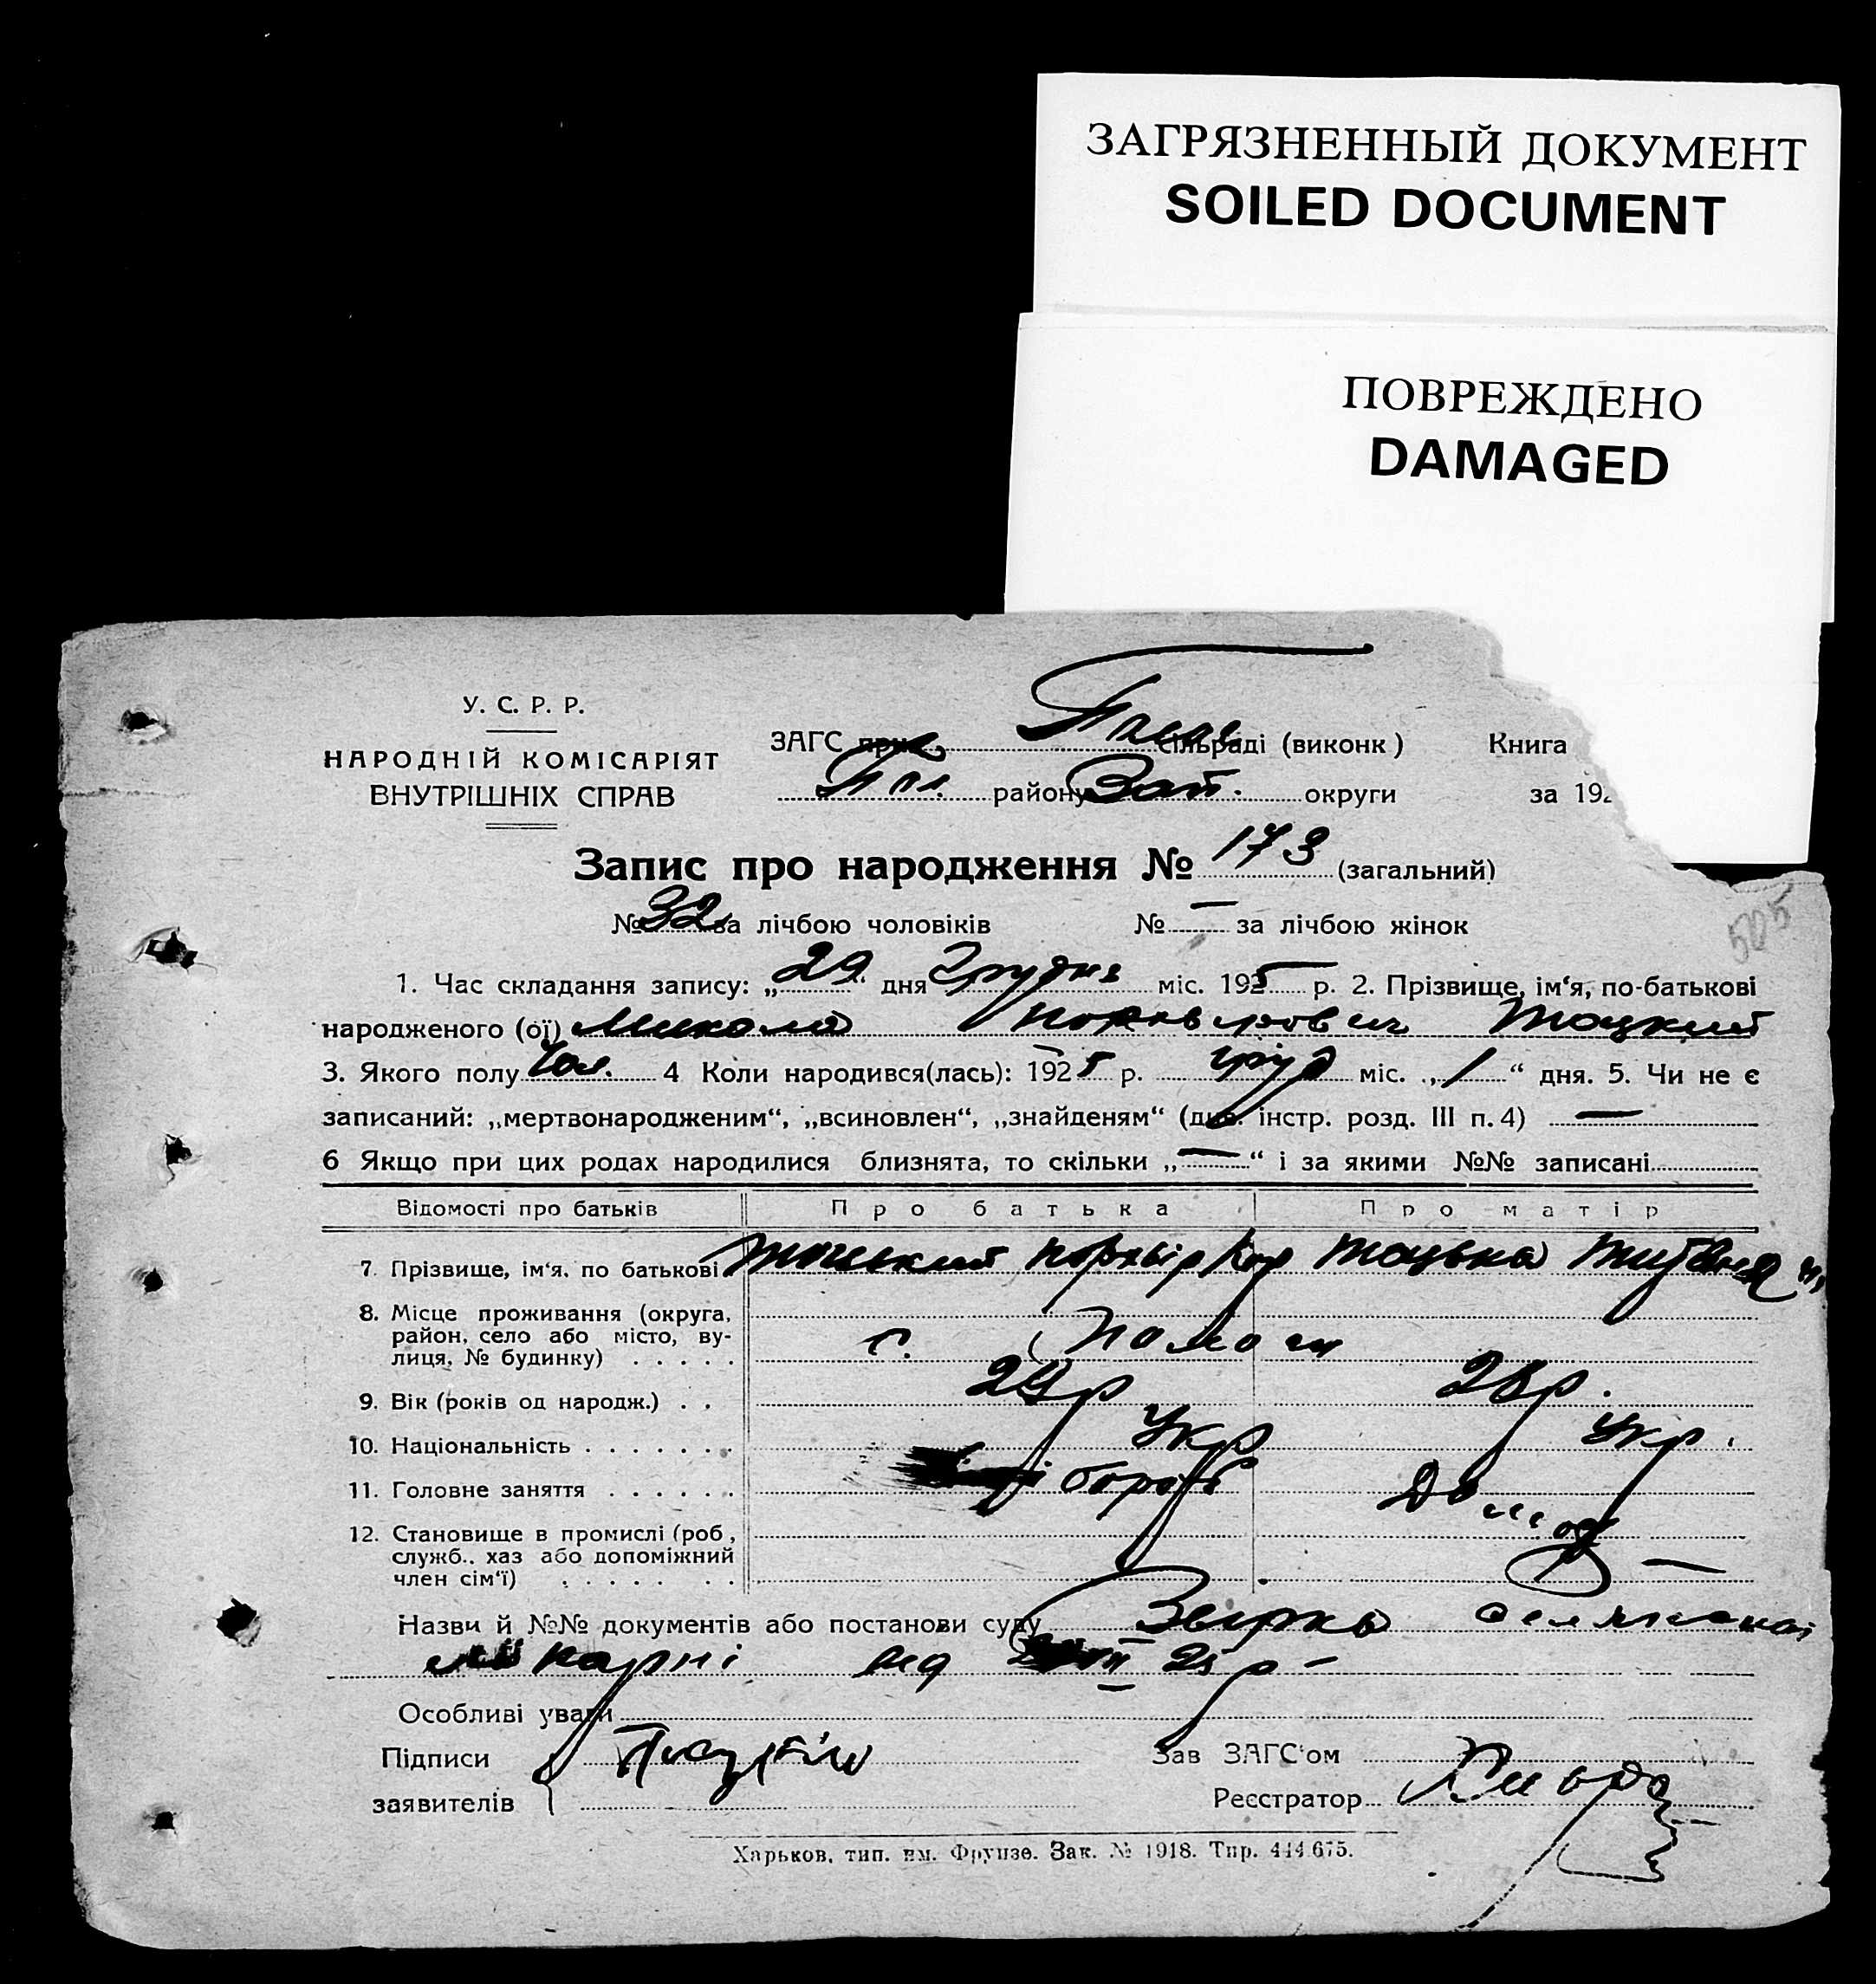 ЗАГРЯЗНЕННЫЙ ДОКУМЕНТ
SOILED DOCUMENT
ПОВРЕЖДЕНО
DAMAGED
У. С. Р. Р.
НАРОДНІЙ КОМІСАРІЯТ
ВНУТРІШНІХ СПРАВ
ЗАГС при сільраді (виконк) Книга
району Зап. округи за 192
Запис про народження № 173 (загальний)
№ 32 за лічбою чоловіків № — за лічбою жінок
505
1. Час складання запису: „ 29 “ дня Грудня міс. 1925 р. 2. Прізвище, ім‘я, по-батькові
народженого (ої) Микола Тоцкий
3. Якого полу Чол. 4 Коли народився(лась): 1925 р. груд міс. „ 1 “ дня. 5. Чи не є
записаний: „мертвонародженим“, „всиновлен“, „знайденям“ (див. інстр. розд. III п. 4) —
6 Якщо при цих родах народилися близнята, то скільки „ — “ і за якими №№ записані
Відомості про батьків Про батька Про матір
7. Прізвище, ім‘я, по батькові Тоцький Порхвір Тоцька
8. Місце проживання (округа,
район, село або місто, ву-
лиця, № будинку) . . . . . с. Пологи
9. Вік (років од народж.) . . 29 р 28 р.
10. Національність . . . . . . . Укр Укр.
11. Головне заняття . . . . . .
12. Становище в промислі (роб.,
служб., хаз або допоміжний
член сім‘ї) . . . . . . . —
Назви й №№ документів або постанови суду
лікарні від 25 р –
Особливі уваги
Підписи Зав ЗАГС‘ом
заявителів Реєстратор
Харьков, тип. им. Фрунзе. Зак. № 1918. Тир. 444.675.